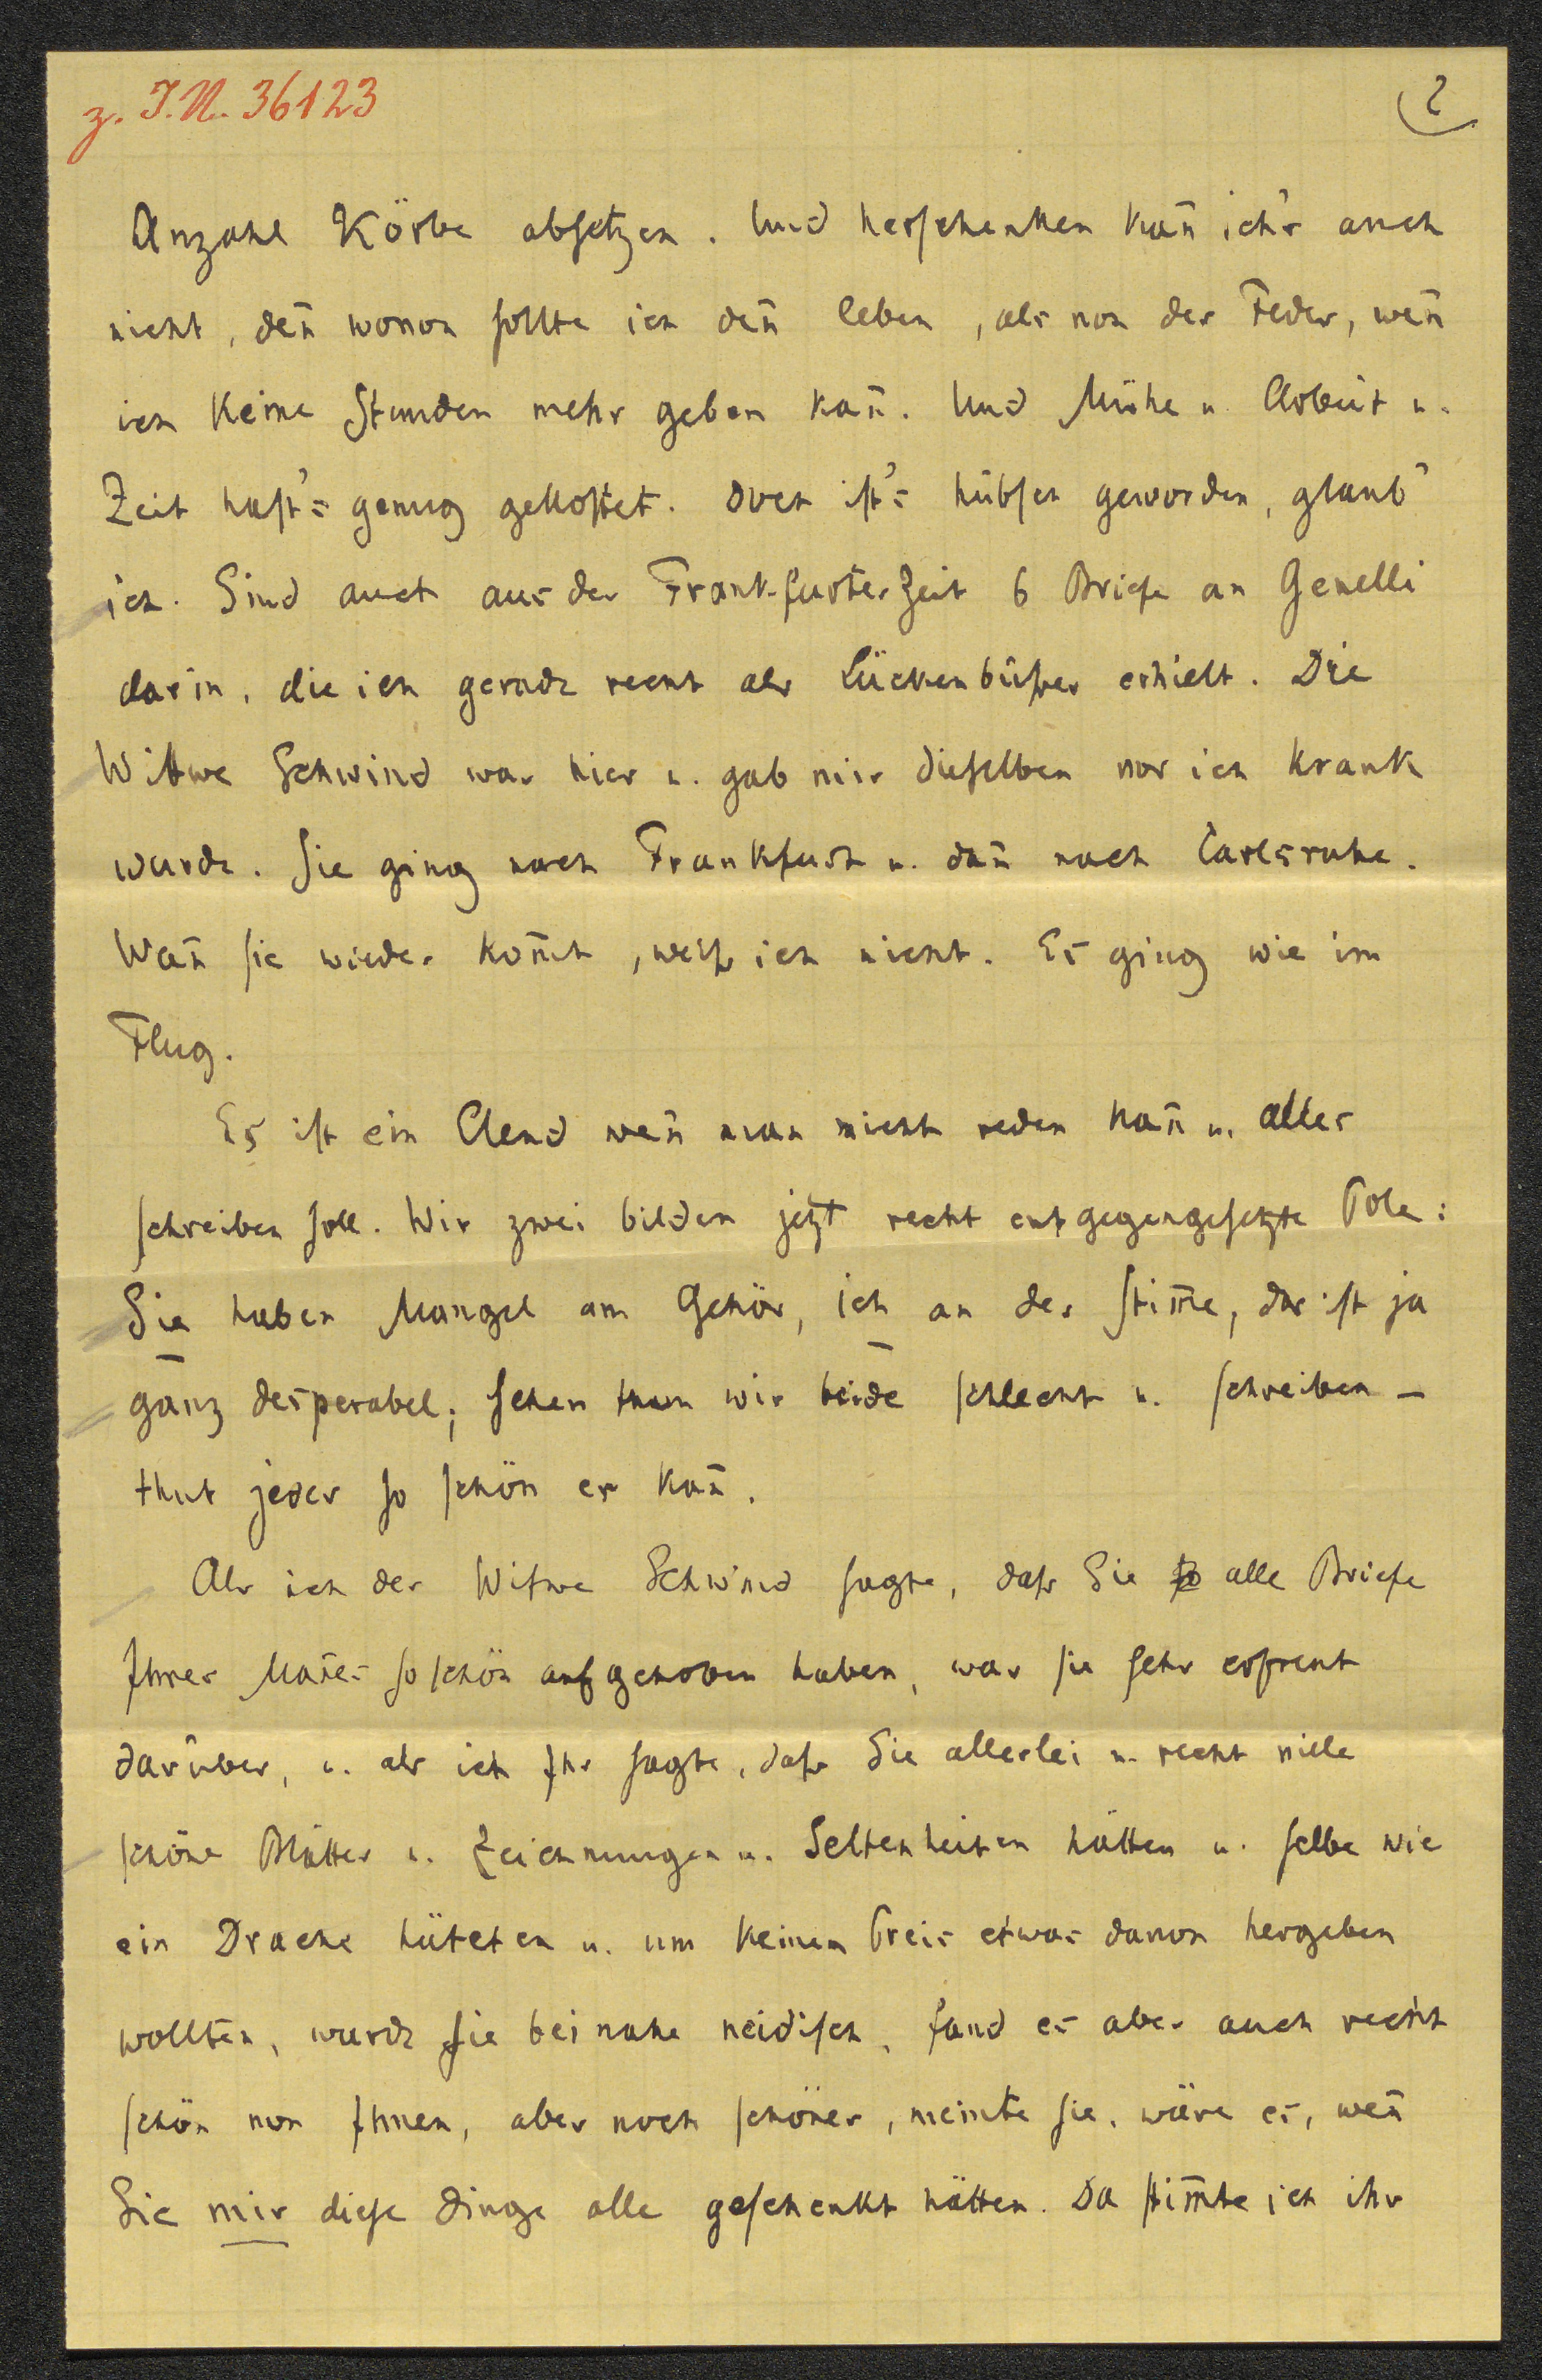 z. I.N. 36123
2
Anzahl Körbe absetzen. Und herschenken kan̄ ich's auch
nicht, den̄ wovon sollte ich den̄ leben, als von der Feder, wen̄
ich keine Stunden mehr geben kan̄. Und Mühe u. Arbeit u.
Zeit hast's genug gekostet. Doch ist's hübsch geworden, glaub'
ich. Sind auch aus der Frankfurter Zeit 6 Briefe an Genelli
darin, die ich gerade recht als Lückenbüßer erhielt. Die
Wittwe Schwind war hier u. gab mir dieselben vor ich krank
wurde. Sie ging nach Frankfurt u. dan̄ nach Carlsruhe.
Wan̄ sie wieder kom̄t, weiß ich nicht. Es ging wie im
Flug.
Es ist ein Elend wen̄ man nicht reden kan̄ u. alles
schreiben soll. Wir zwei bilden jetzt recht entgegengesetzte Pole:
Sie haben Mangel am Gehör, ich an der Stim̄e, das ist ja
ganz desperabel; sehen thun wir beide schlecht u. schreiben –
thut jeder so schön er kan̄.
Als ich der Witwe Schwind sagte, daß Sie alle Briefe
Ihres Man̄es so schön aufgehoben haben, war sie sehr erfreut
darüber, u. als ich Ihr sagte, daß Sie allerlei u. recht viele
schöne Blätter u. Zeichnungen u. Seltenheiten hätten u. selbe wie
ein Drache hüteten u. um keinen Preis etwas davon hergeben
wollten, wurde sie beinahe neidisch, fand es aber auch recht
schön von Ihnen, aber noch schöner, meinte sie, wäre es, wen̄
Sie mir diese Dinge alle geschenkt hätten. Da stim̄te ich ihr